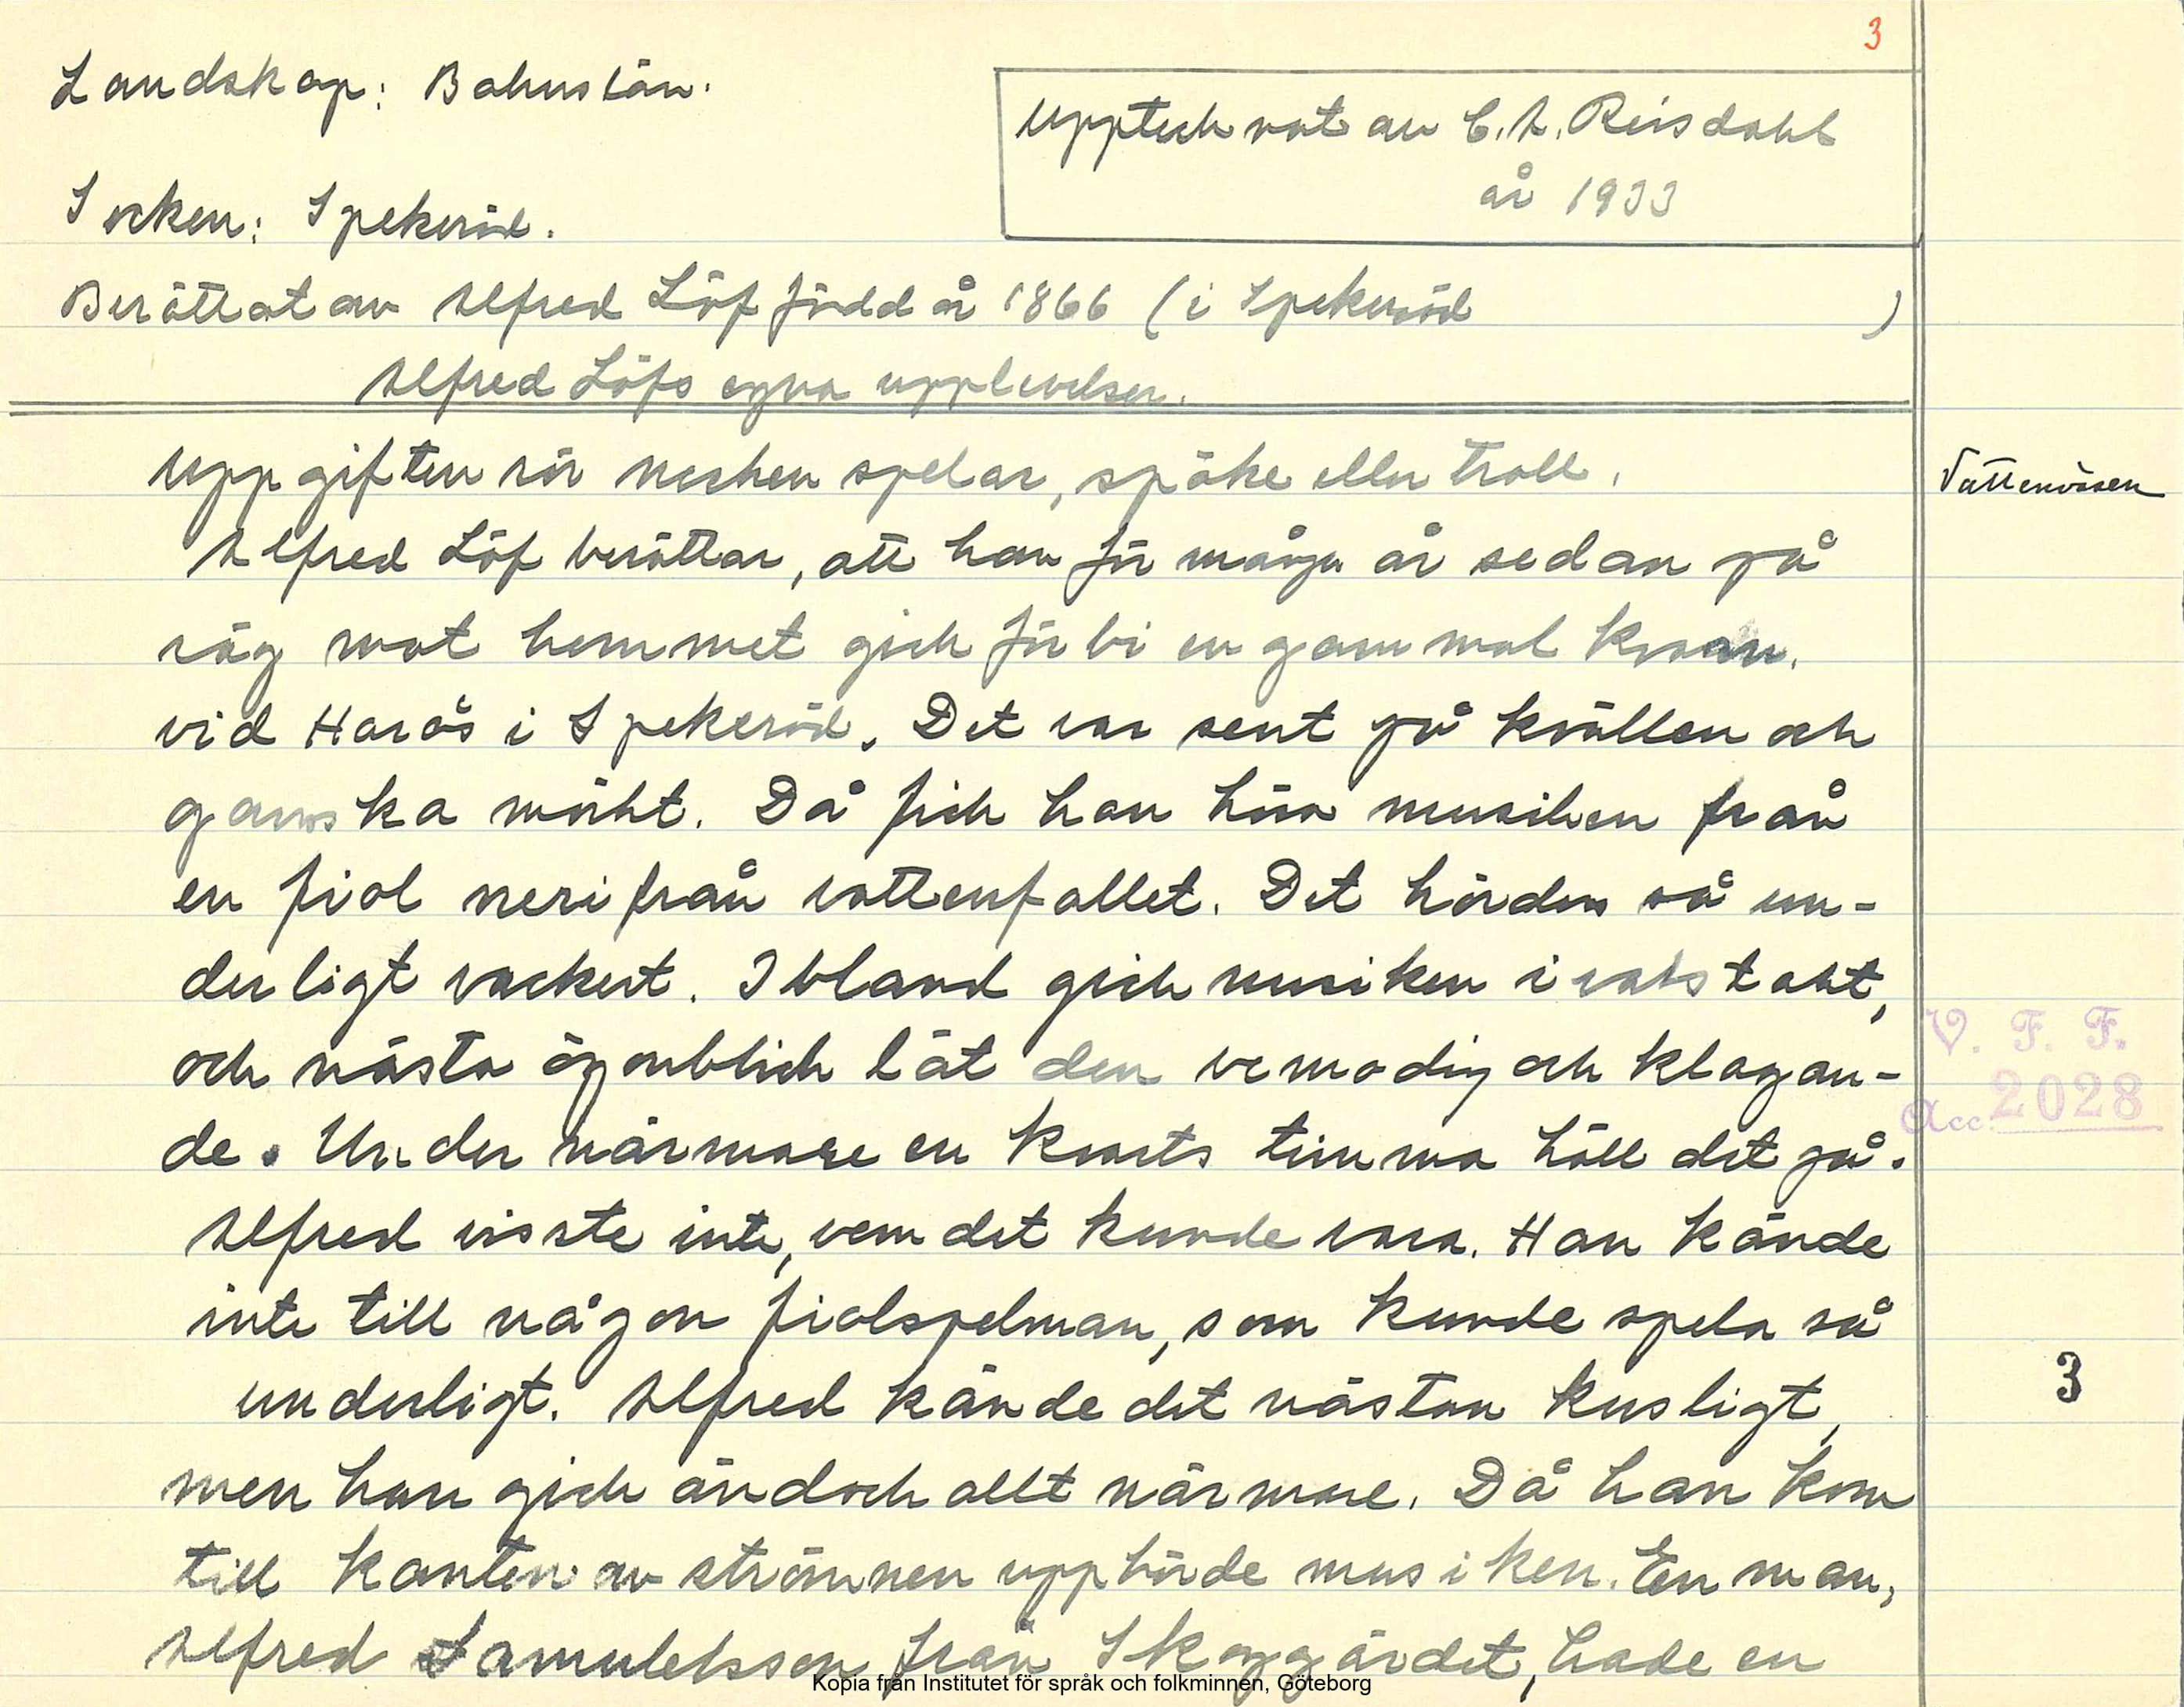 3
Landskap: Bohuslän.
Upptecknat av C. A. Reisdahl
år 1933
Socken: Spekeröd.
Berättat av Alfred Löf född år 1866 (i Spekeröd )
Alfred Löfs egna upplevelser.
Uppgiften rör necken spelar, spöke eller troll.
Vattenväsen
Alfred Löf berättar, att han för många år sedan på
väg mot hemmet gick förbi en gammal kvarn.
vid Harås i Spekeröd. Det var sent på kvällen och
ganska mörkt. Då fick han höra musiken från
en fiol nerifrån vattenfallet. Det hördes så un-
derligt vackert. Ibland gick musiken i valstakt,
och nästa ögonblick lät den vemodig och klagan-
V. F. F.
de. Under närmare en kvarts timma höll det på.
Acc. 2028
Alfred visste inte, vem det kunde vara. Han kände
inte till någon fiolspelman, som kunde spela så
3
underligt. Alfred kände det nästan kusligt,
men han gick ändock allt närmare. Då han kom
till kanten av strömmen upphörde musiken. En man,
Alfred Samuelsson från Skoggärdet, hade en
Kopia från Institutet för språk och folkminnen, Göteborg